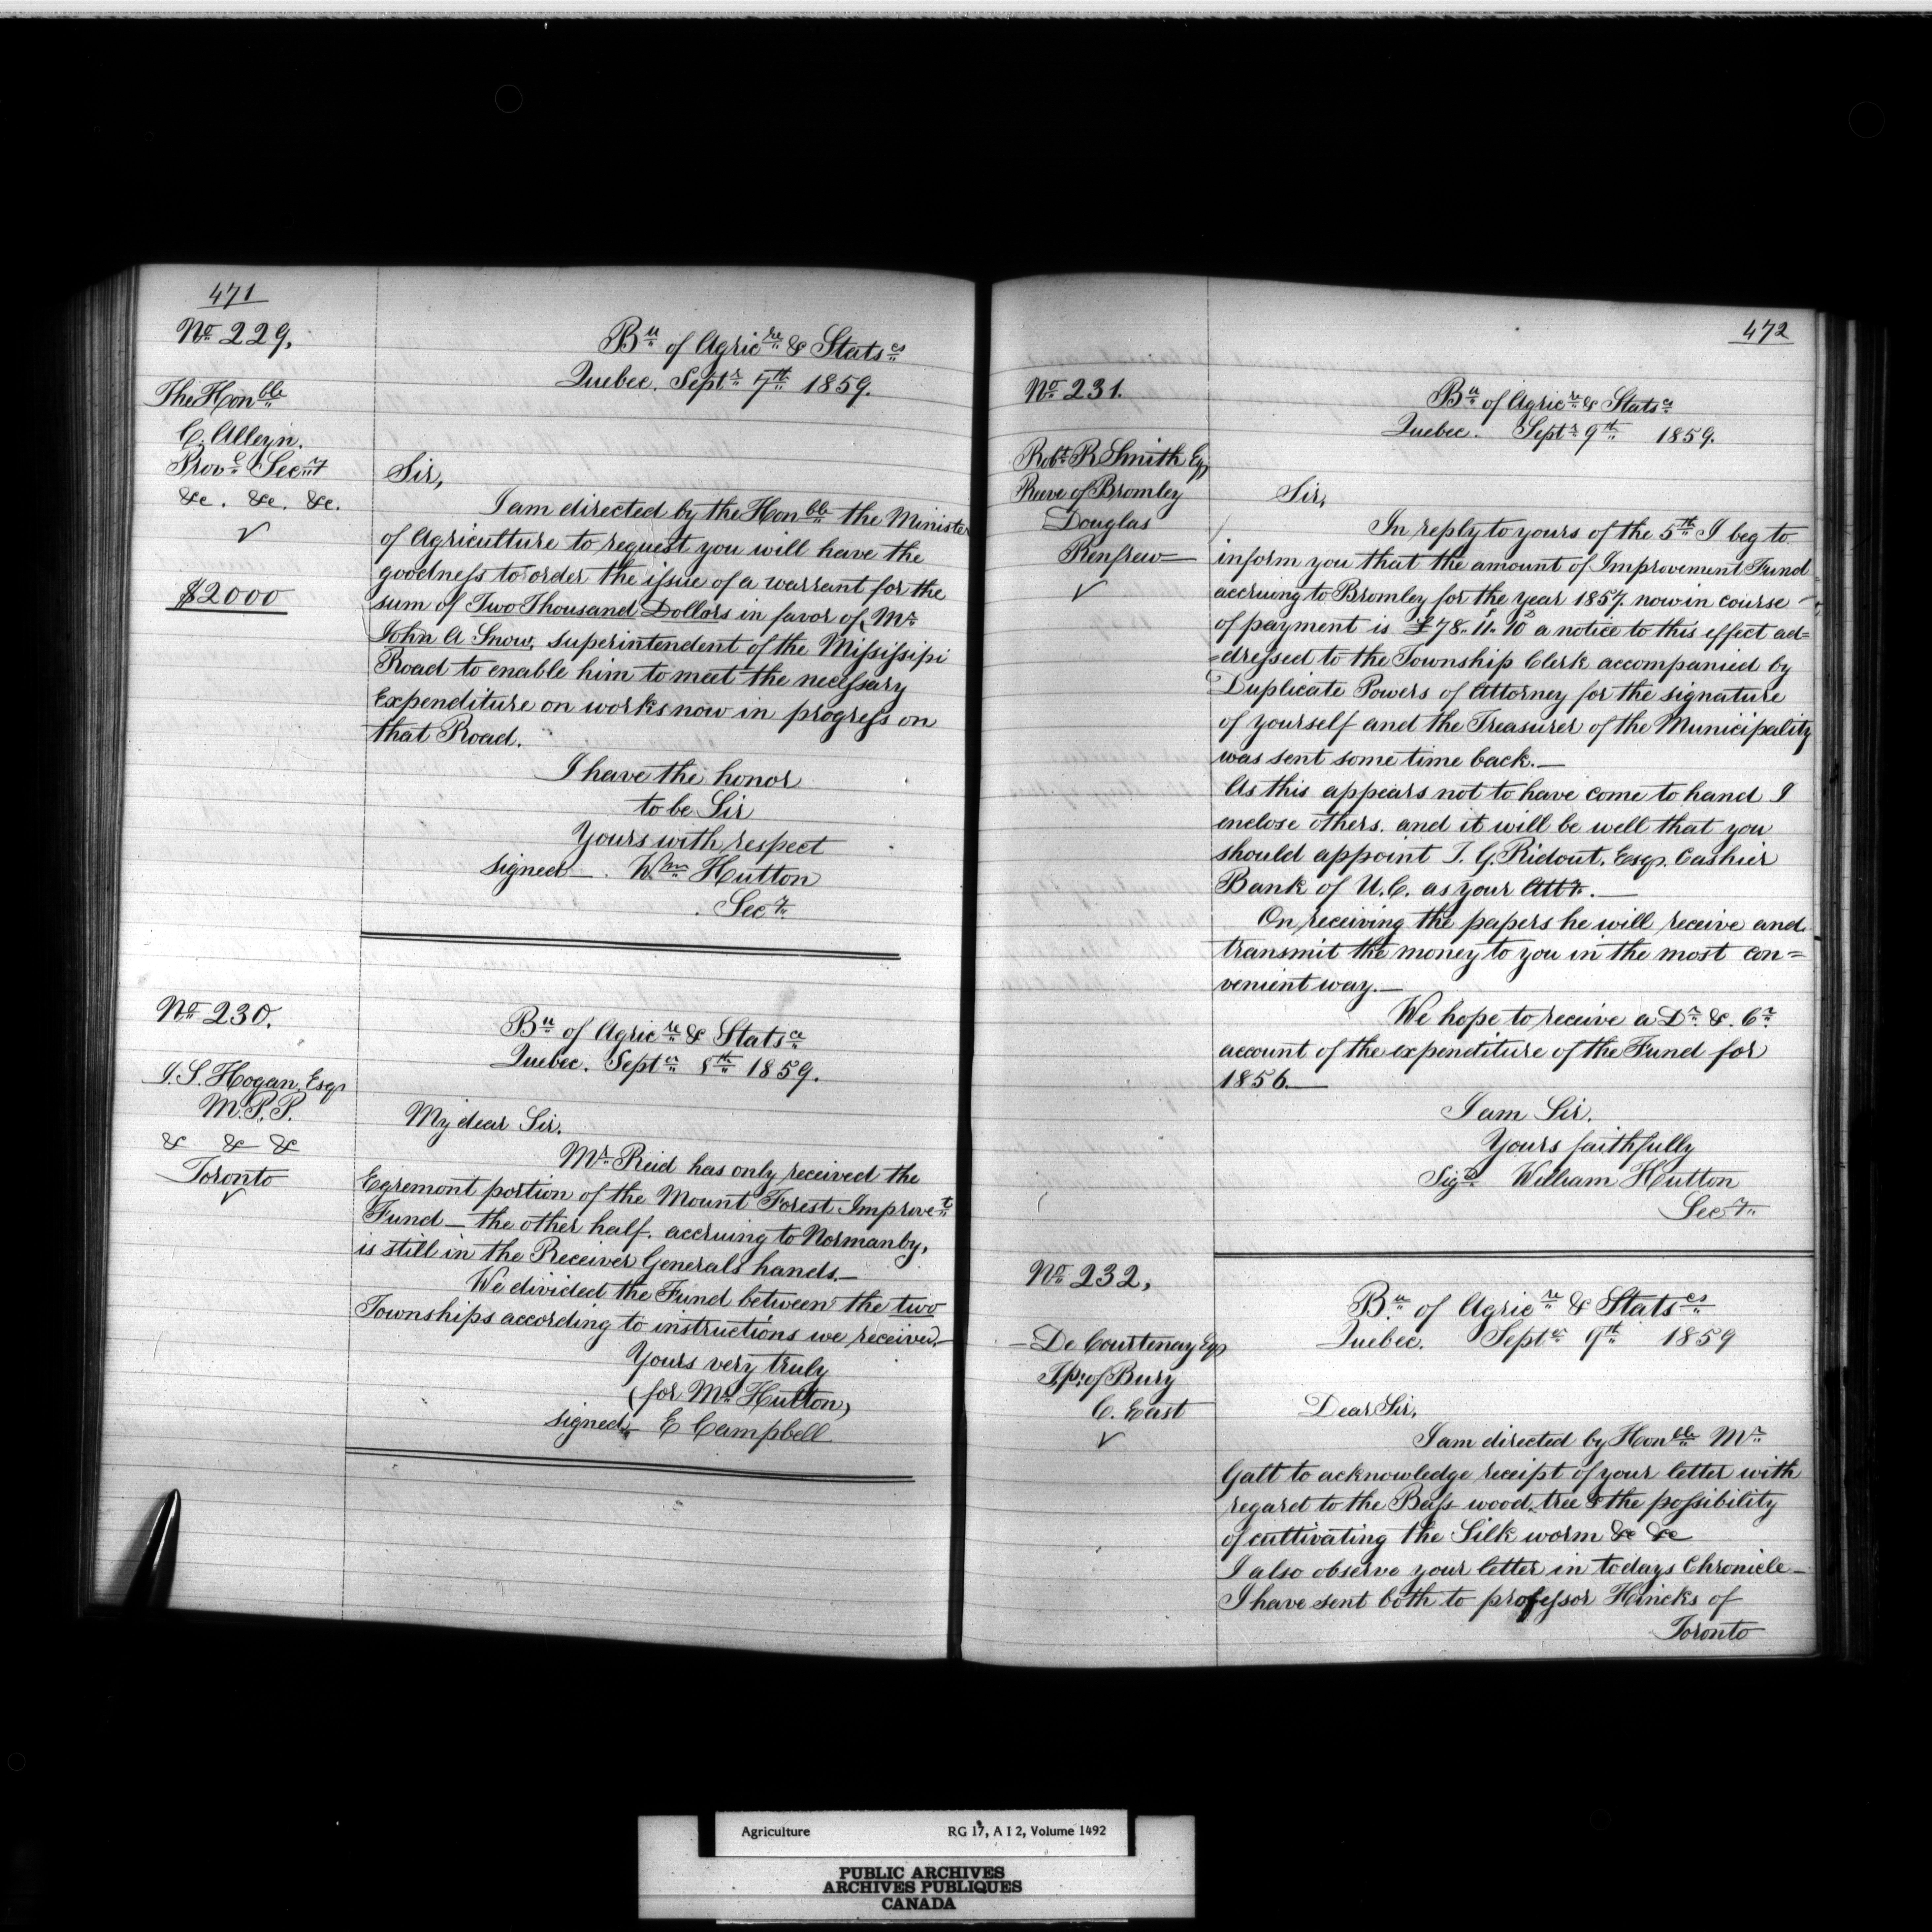 471
No 229,
Bu of Agricre & Statscs
Quebec. Septr 7th 1859.
The Honble
C. Alleyn.
Provl Secry
&c. &c. &c.
✓
$2000
Sir,
I am directed by the Honble the Minister
of Agriculture to request you will have the
goodness to order the issue of a warrant for the
sum of Two Thousand Dollars in favor of, Mr
John A Snow, superintendent of the Missisipi
Road to enable him to meet the necessary
Expenditure on works now in progress on
that Road.
I have the honor
to be Sir
Yours with respect
signed. Wm Hutton
Secy
No 230.
Bu of Agricre & Statscs
Quebec. Septer 8th 1859.
J. S. Hogan, Esqr
M.P.P.
& & &
Toronto
✓
My dear Sir.
Mr Reid has only received the
Egremont portion of the Mount Forest Improvet
Fund — the other half. accruing to Normanby,
is still in the Receiver Generals hands.—
We divided the Fund between the two
Townships according to instructions we received—
Yours very truly
(for Mr Hutton)
signed E Campbell
472
No 231.
Bu of Agricre & Statscs
Quebec. Septr 9th 1859.
Robt R Smith Esq
Reeve of Bromley
Douglas
Renfrew—
✓
Sir,
In reply to yours of the 5th I beg to
inform you that the amount of Improvement Fund
accruing to Bromley for the year 1857. now in course
of payment is £78. 11. 10 a notice to this effect ad=
=dressed to the Township Clerk accompanied by
Duplicate Powers of Attorney for the signature
of yourself and the Treasurer of the Municipality
was sent some time back.—
As this appears not to have come to hand I
enclose others. and it will be well that you
should appoint T. G. Ridout. Esqr. Cashier
Bank of U.C. as your Atty.—
On receiving the papers he will receive and
transmit the money to you in the most con=
venient way.—
We hope to receive a Dr. &. Cr.
account of the expenditure of the Fund for
1856.—
I am Sir.
Yours faithfully
Sigd William Hutton
Secy
No 232,
Bu of Agricre & Statscs
Quebec. Septer 9th 1859
— De Courtenay Esqr
Tp: of Bury
C. East
✓
Dear Sir,
I am directed by Honble Mr
Galt to acknowledge receipt of your letter with
regard to the Bass wood tree & the possibility
of cultivating the Silk worm &c &c
I also observe your letter in todays Chronicle—
I have sent both to professor Hincks of
Toronto
Agriculture RG 17, A I 2, Volume 1492
PUBLIC ARCHIVES
ARCHIVES PUBLIQUES
CANADA